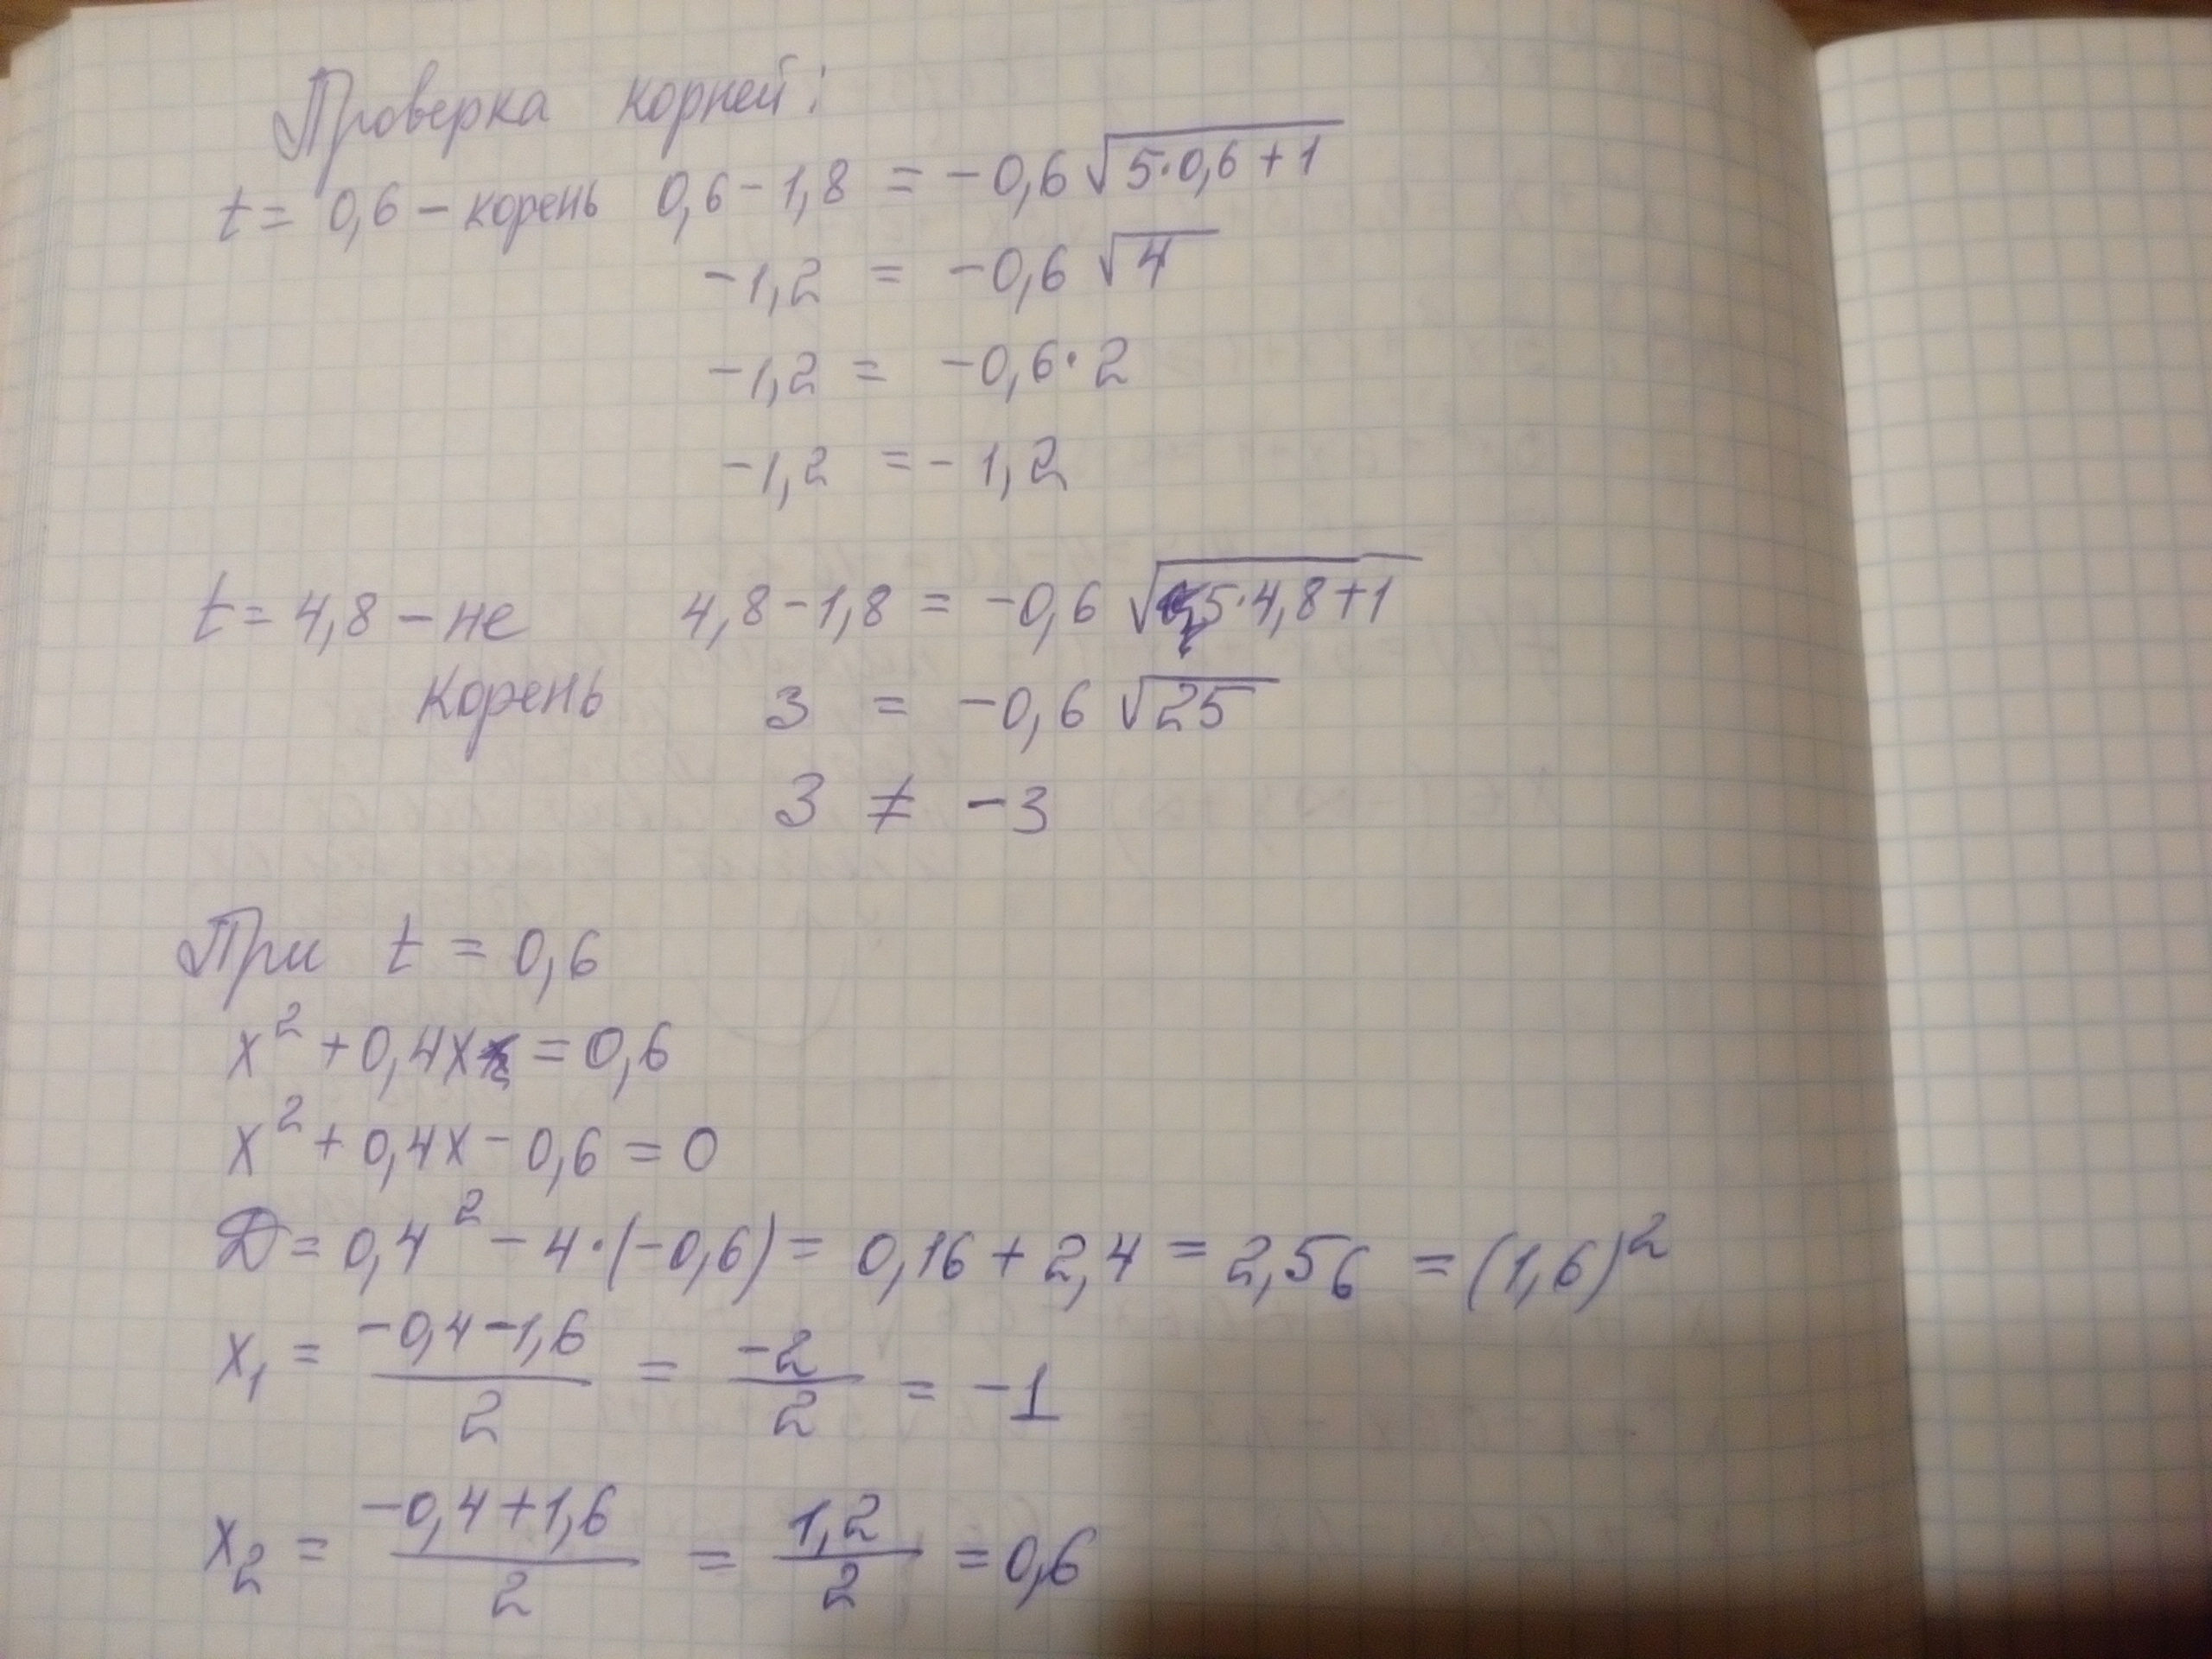 Проверка корней:
t = 0,6 – корень 0,6 - 1,8 = -0,6 √(5·0,6 + 1)
-1,2 = -0,6 √4
-1,2 = -0,6 · 2
-1,2 = -1,2
t = 4,8 – не корень 4,8 - 1,8 = -0,6 √(5·4,8 + 1)
3 = -0,6 √25
3 ≠ -3
При t = 0,6
x² + 0,4x = 0,6
x² + 0,4x - 0,6 = 0
D = 0,4² - 4·(-0,6) = 0,16 + 2,4 = 2,56 = (1,6)²
x₁ = (-0,4 - 1,6)/2 = -2/2 = -1
x₂ = (-0,4 + 1,6)/2 = 1,2/2 = 0,6